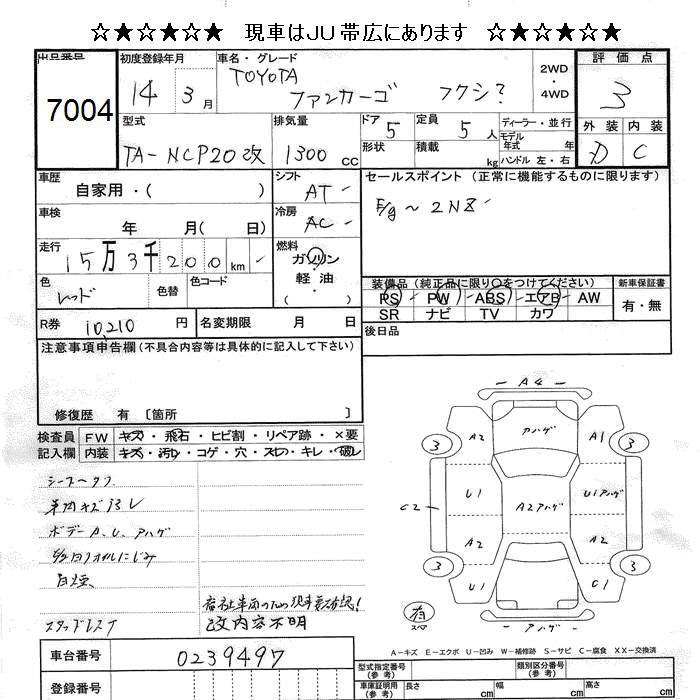 ☆★☆★☆★ 現車はJU帯広にあります ☆★☆★☆★
出品番号 初度登録年月 車名・グレード 2WD 評価点
7004 14 3月 TOYOTA ・ 3
ファンカーゴ フクシ? 4WD
型式 排気量 ドア 5 定員 5人 ディーラー・並行 外装 内装
TA-NCP20改 1300cc 形状 積載 kg モデル年式 年 D C
ハンドル 左・右
車歴 自家用・( ) シフト AT セールスポイント (正常に機能するものに限ります)
車検 年 月( 日) 冷房 AC E/g~2NZ
走行 15万3千200km 燃料 ガソリン
軽油
・( )
色 レッド 色替 色コード 装備品(純正品に限り○をつけてください) 新車保証書
PS PW ABS エアB AW 有・無
SR ナビ TV カワ
R券 10,210円 名変期限 月 日 後日品
注意事項申告欄(不具合内容等は具体的に記入して下さい)
修復歴 有 〔箇所 〕
検査員 FW キズ・飛石・ヒビ割・リペア跡・×要
記入欄 内装 キズ・汚レ・コゲ・穴・スレ・キレ・破レ
A4
A2 アハゲ A1
3 3
C2 U1 A2アハゲ U1アハゲ
A2 A2
3 3
U1 C1
有 スペア アハゲ
ボデーA、U、アハゲ
白煙
スタッドレス
改内容不明
A-キズ E-エクボ U-凹み W-補修跡 S-サビ C-腐食 XX-交換済
車台番号 0239497
型式指定番号(参考) 類別区分番号(参考)
登録番号 車庫証明用(参考) 長さ cm 幅 cm 高さ cm